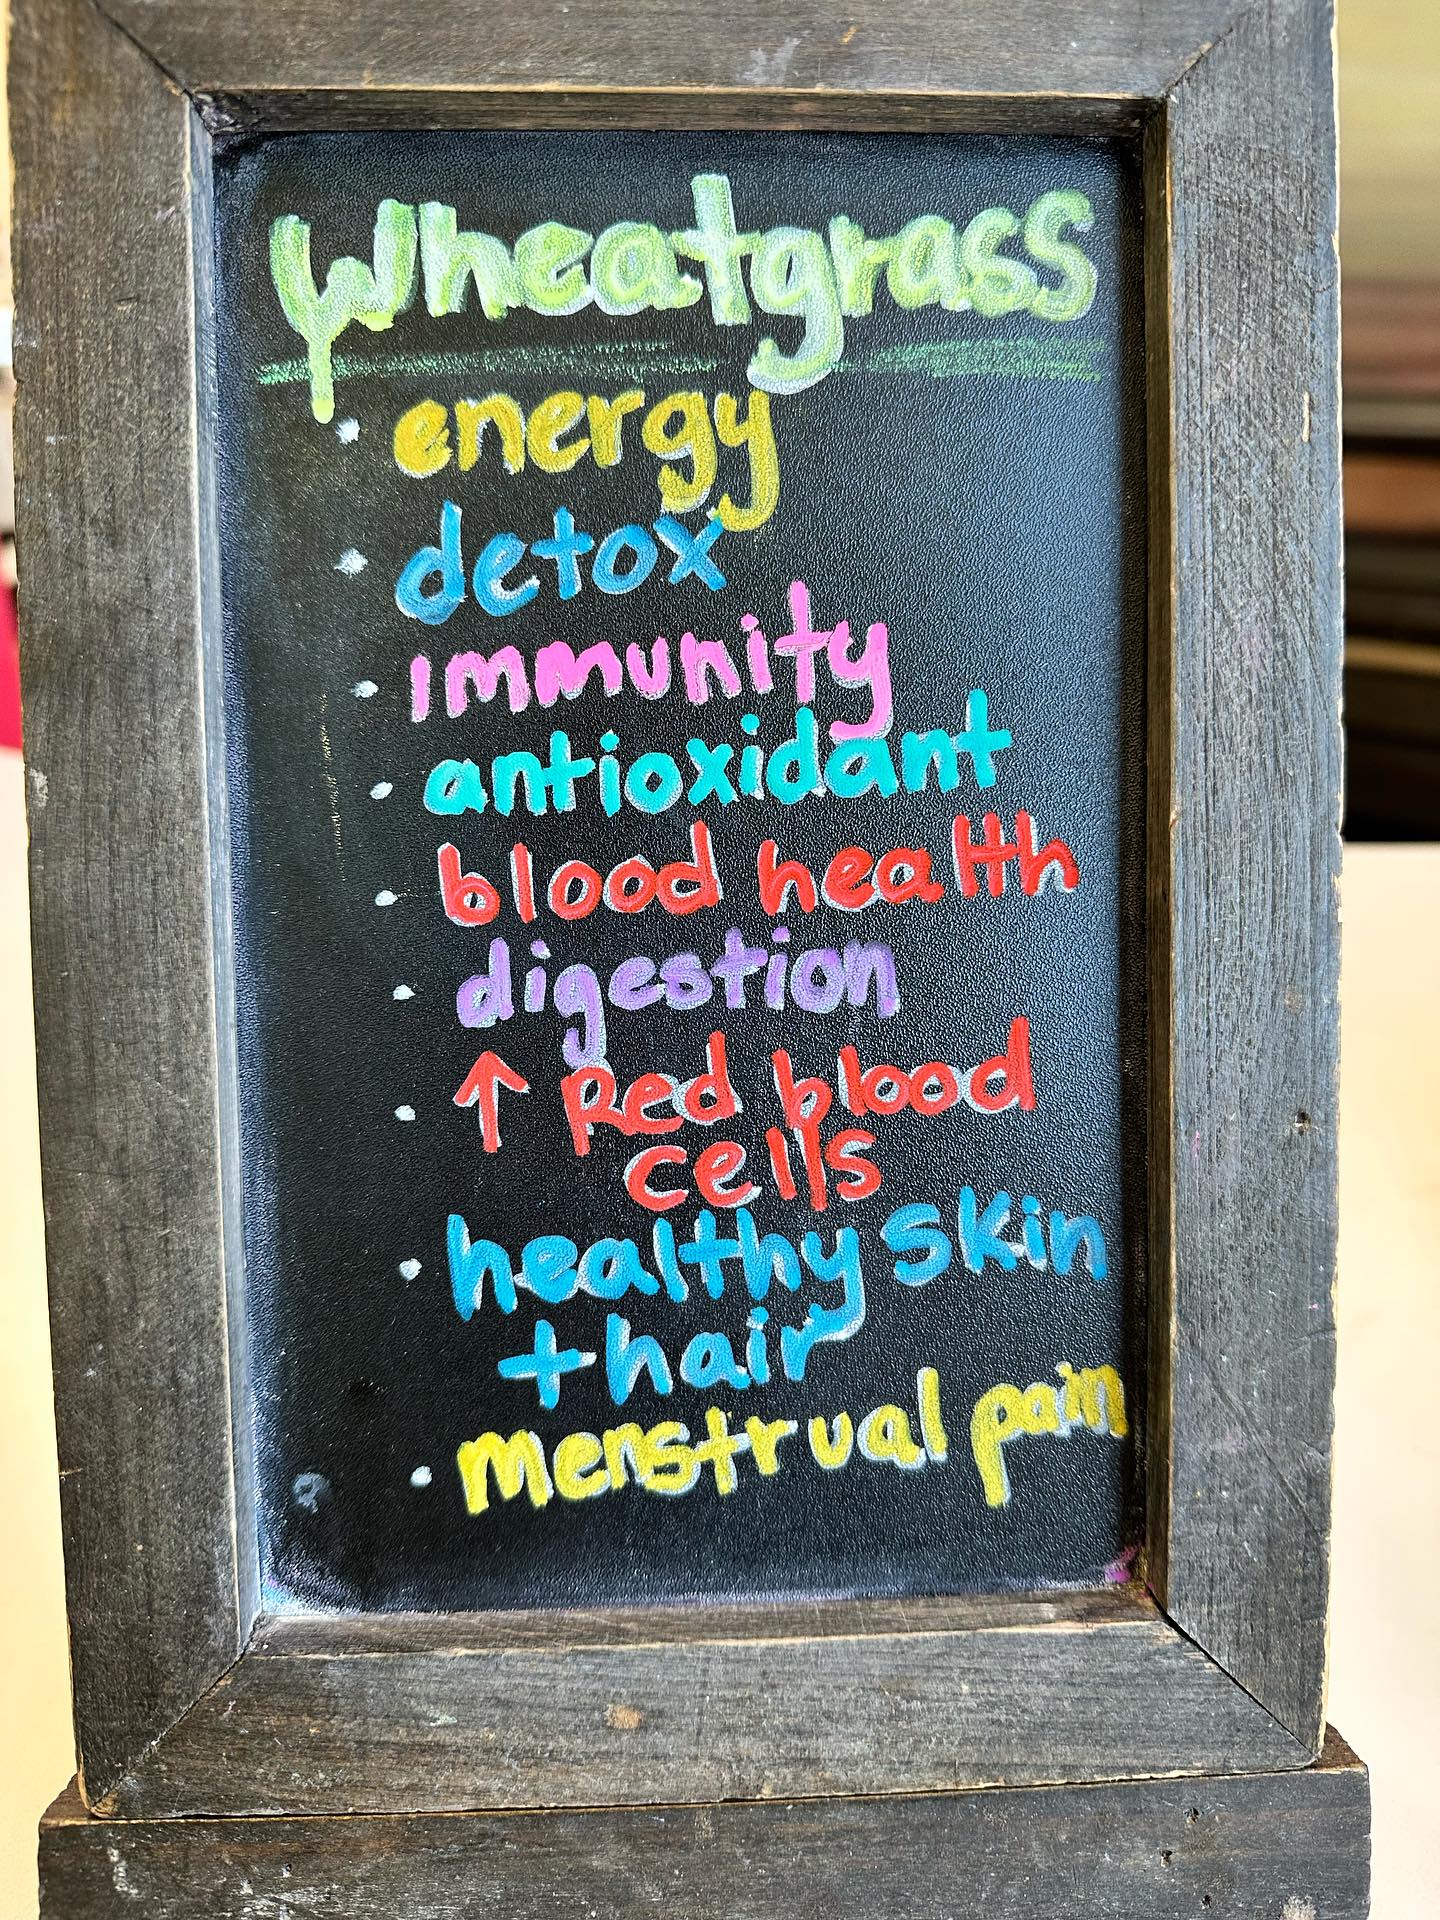 Wheatgrass
• energy
• detox
• immunity
• antioxidant
• blood health
• digestion
• ↑ Red blood
cells
• healthy skin
+ hair
• menstrual pain